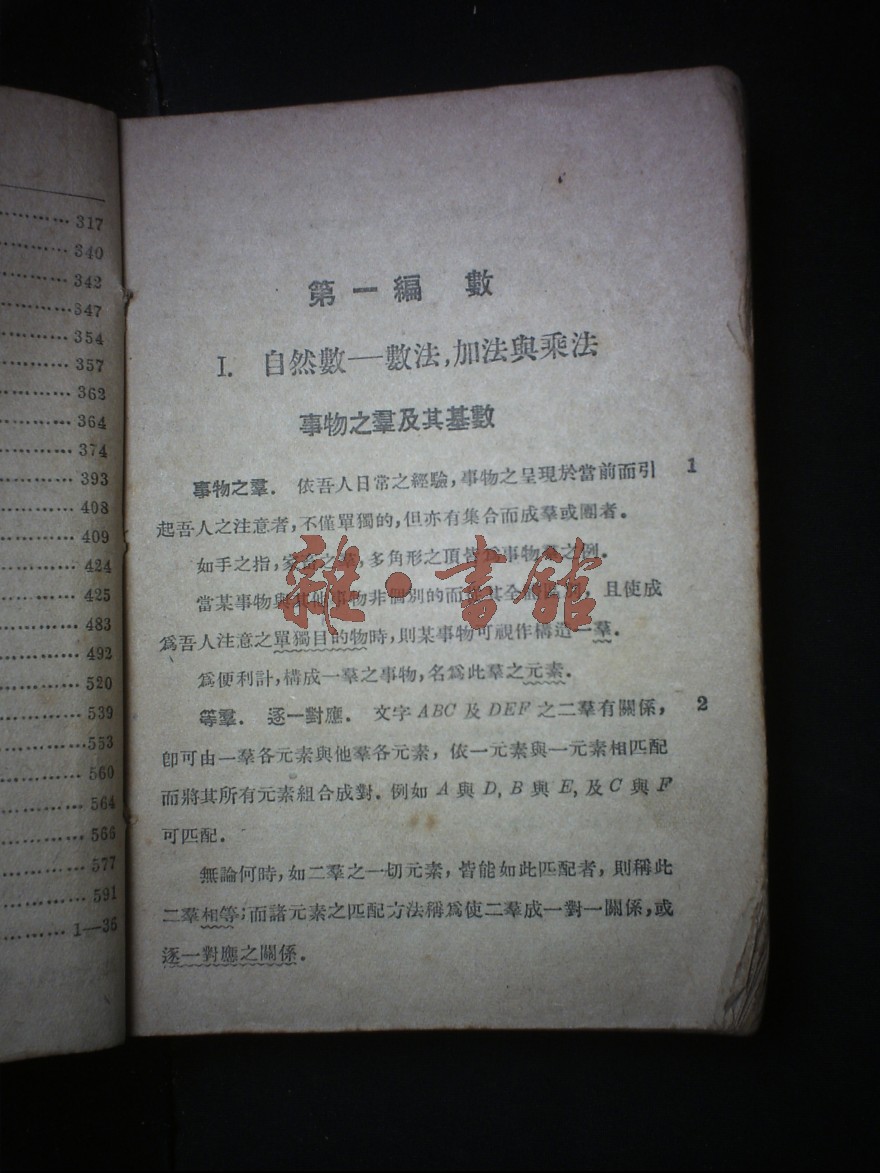 317
340
342
347
354
357
362
364
374
393
408
409
424
425
483
492
520
539
553
560
564
566
577
591
1—36
第一編 數
I. 自然數—數法,加法與乘法
事物之羣及其基數
事物之羣. 依吾人日常之經驗,事物之呈現於當前而引 1
起吾人之注意者,不僅單獨的,但亦有集合而成羣或團者.
如手之指,家畜之羣,多角形之頂皆爲事物羣之例.
當某事物與其他事物非個別的而 其全體 , 且使成
爲吾人注意之單獨目的物時,則某事物可視作構造一羣.
爲便利計,構成一羣之事物,名爲此羣之元素.
等羣. 逐一對應. 文字 ABC 及 DEF 之二羣有關係, 2
卽可由一羣各元素與他羣各元素, 依一元素與一元素相匹配
而將其所有元素組合成對. 例如 A 與 D, B 與 E, 及 C 與 F
可匹配.
無論何時,如二羣之一切元素, 皆能如此匹配者, 則稱此
二羣相等;而諸元素之匹配方法稱爲使二羣成一對一關係,或
逐一對應之關係.
雜·書館